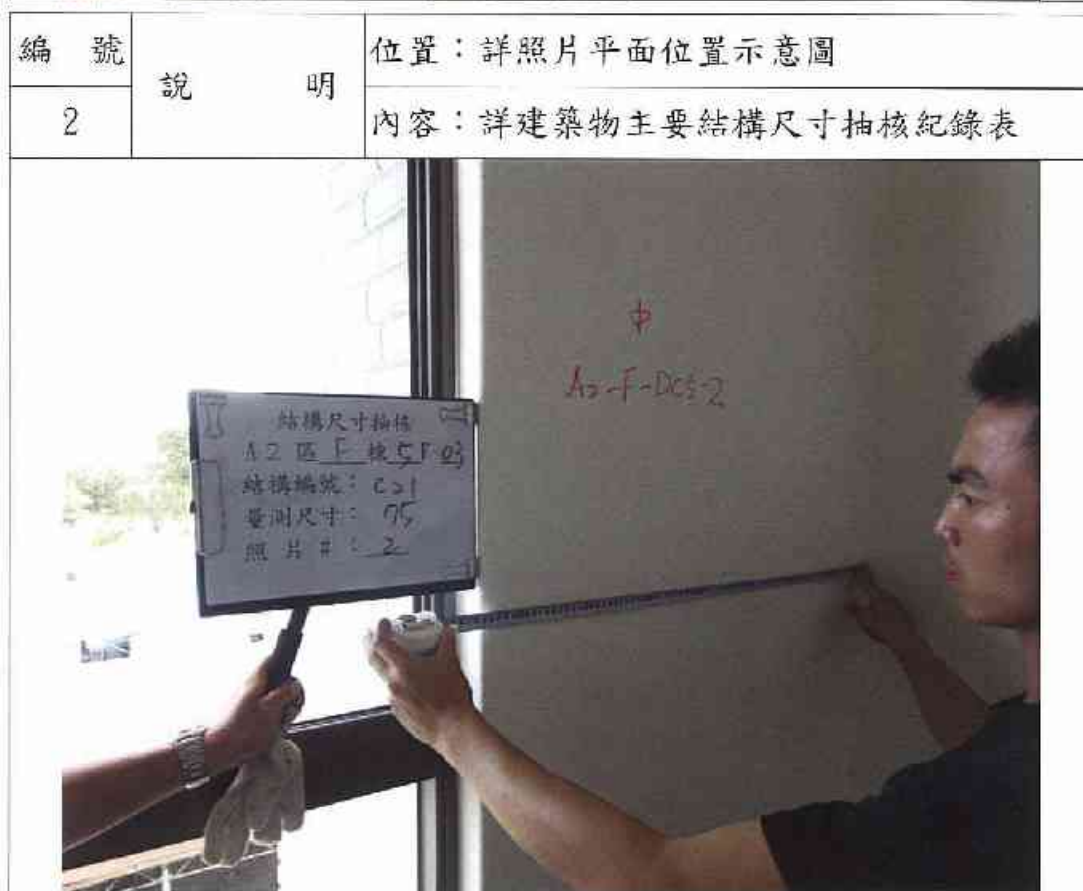 編 號
說 明
位置：詳照片平面位置示意圖
2
內容：詳建築物主要結構尺寸抽核紀錄表
中
A2-F-DC5-2
結構尺寸抽核
A2 區 F 棟 5F-03
結構編號： C21
量測尺寸： 75
照 片 #： 2